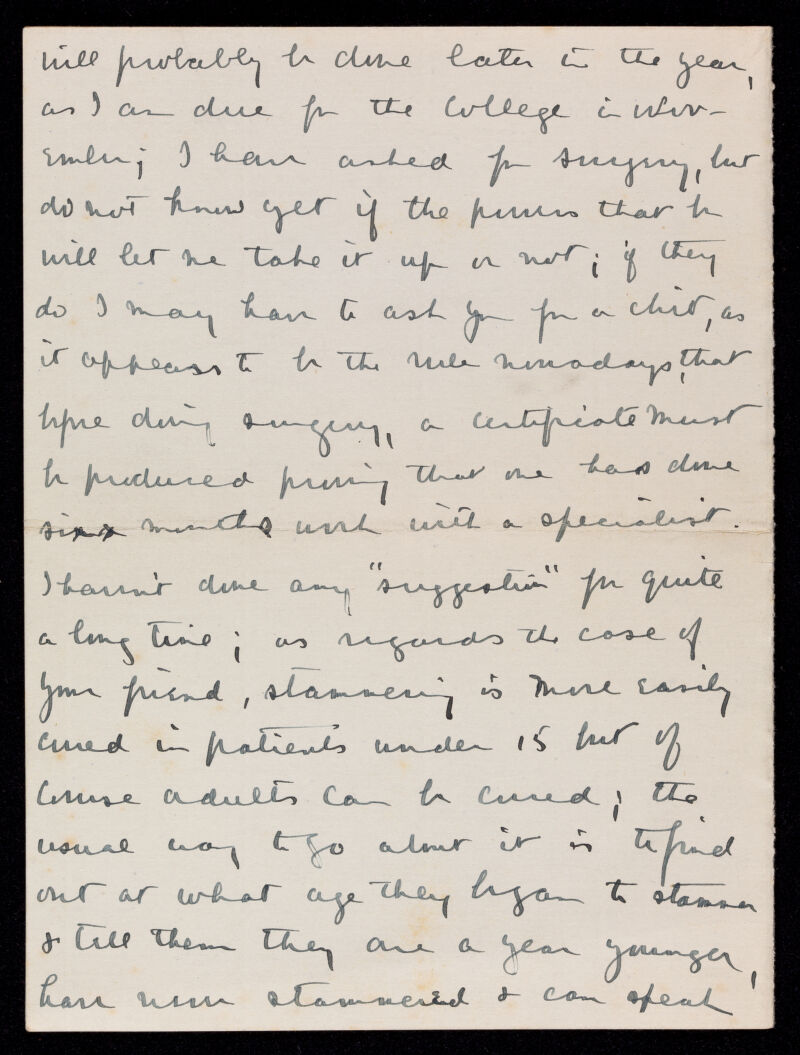 will probably be done later in the year,
as I am due for the College in Nov-
ember; I have asked for singing, but
do not know yet if the powers that be
will let me take it up or not; if they
do I may have to ask you for a chit, as
it appears to be the rule nowadays, that
before doing singing, a certificate must
be produced proving that one has done
six months work with a specialist.
I haven't done any "suggestion" for quite
a long time; as regards the case of
your friend, stammering is more easily
cured in patients under 15 but of
course adults can be cured; the
usual way to go about it is to find
out at what age they began to stammer
& tell them they are a year younger,
have never stammered & can speak